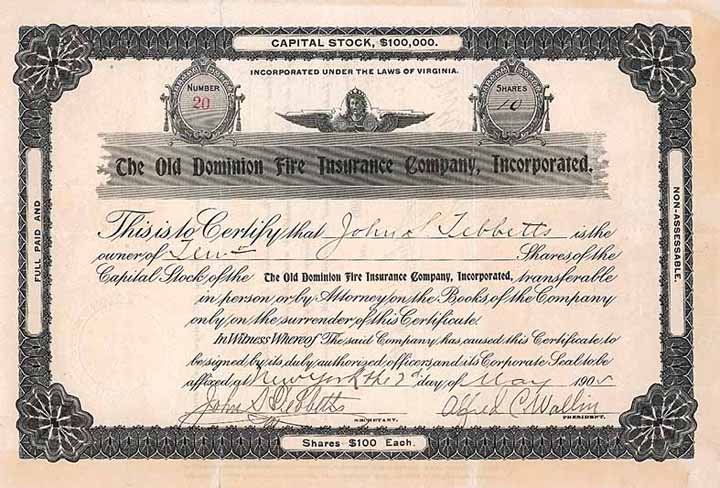 CAPITAL STOCK, $100,000.
INCORPORATED UNDER THE LAWS OF VIRGINIA.
NUMBER
20
SHARES
10
The Old Dominion Fire Insurance Company, Incorporated.
FULL PAID AND
NON-ASSESSABLE.
This is to Certify that John S Tebbetts is the
owner of Ten Shares of the
Capital Stock of the The Old Dominion Fire Insurance Company, Incorporated, transferable
in person or by Attorney on the Books of the Company
only on the surrender of this Certificate.
In Witness Whereof The said Company has caused this Certificate to
be signed by its duly authorized officers and its Corporate Seal to be
affixed at New York the day of May 190
John S Tebbetts
SECRETARY.
Alfred C Wallin
PRESIDENT.
Shares $100 Each.